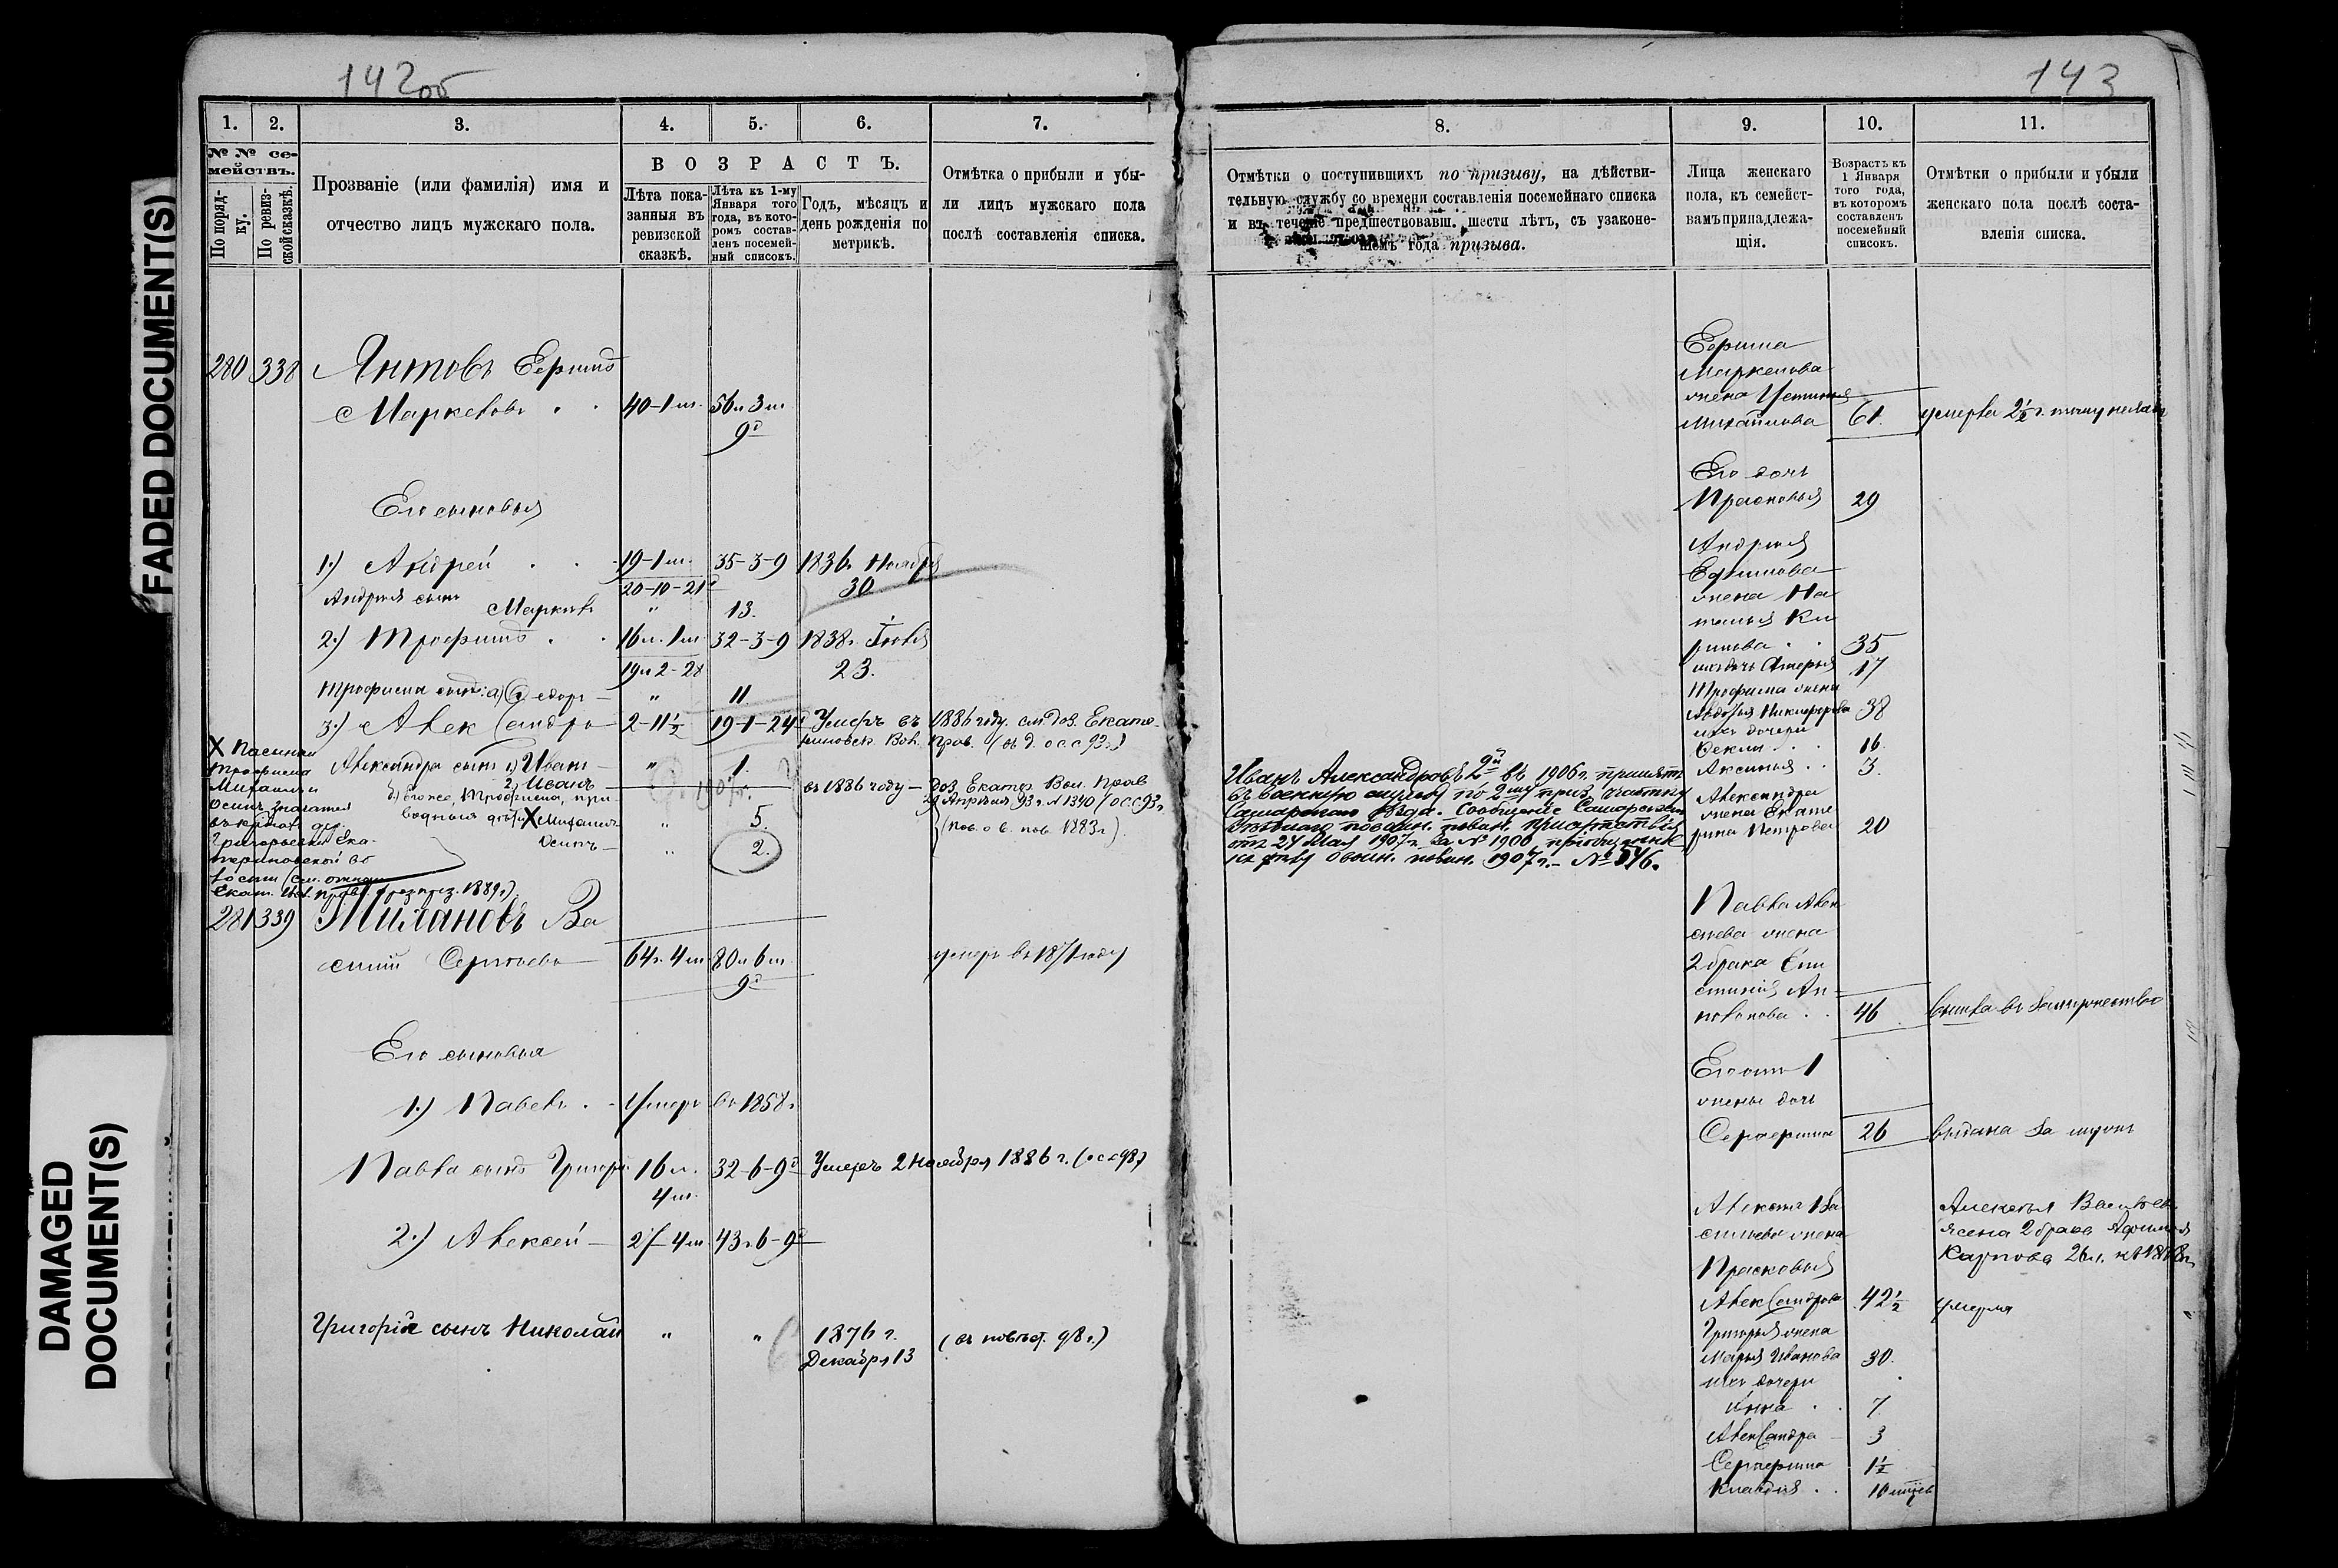 142об
1. 2. 3. 4. 5. 6. 7.
№ № се-
мействъ.
По поряд-
ку.
По ревиз-
ской сказкѣ.
Прозваніе (или фамилія) имя и
отчество лицъ мужскаго пола.
ВОЗРАСТЪ.
Лѣта пока-
занныя въ
ревизской
сказкѣ.
Лѣта къ 1-му
Января того
года, въ кото-
ромъ состав-
ленъ посемей-
ный списокъ.
Годъ, мѣсяцъ и
день рожденія по
метрикѣ.
Отмѣтка о прибыли и убы-
ли лицъ мужскаго пола
послѣ составленія списка.
280 338 Янтовъ
40-1 м. 56 л 3 м
9д
Его сыновья
1.) Андрей 19-1 м. 35-3-9 1836 г Ноября
20-10-21д 30
Андрея сынъ
" 13.
2.) Трофимъ 16 л. 1 м. 32-3-9 1838 г. Іюля
19 л 2-28 23.
Трофима сынъ: а) Ѳедоръ " 11
3.) Александръ 2-11½ 19-1-24д Умеръ въ 1886 году. см. дов. Екате-
Вол. Прав. (въ д. о с.с 93 г.)
Александра сынъ 1) Иванъ " 1.
2) Исаакъ въ 1886 году - дов. Екатер. Вол. Прав
23 Апрѣля 93 г. № 1340 / о с с 93 г.
б) Трофима, при-
водныя дѣти X Михаилъ " 5. (пов. о в. пов. 1883 г.)
Осипъ " 2.
X Пасынки
Трофима
Михаилъ и
Осипъ значатся
въ дер.
Григорьевки Ека-
териновской во
лости (см. отнош
Екат. Вол. Прав. 1889 г.)
281 339 Милановъ Ва
силій Сергѣевъ 64 г. 4 м 80 л 6 м умеръ въ 1871 году
9д
Его сыновья
1.) Павелъ Умеръ въ 1858 г
Павла сынъ Григорій 16 л. 32-6-9д Умеръ 2 Ноября 1886 г. (о с с 98 г)
4 м.
2.) Алексей 27-4 м 43 г. 6-9д
Григорія сынъ Николай " " 1876 г. (въ 98 г.)
Декабря 13
143
8. 9. 10. 11.
Отмѣтки о поступившихъ по призыву, на дѣйстви-
тельную службу со времени составленія посемейнаго списка
и въ теченіе предшествовавш. шести лѣтъ, съ узаконе-
ніемъ года призыва.
Лица женскаго
пола, къ семейст-
вамъ принадлежа-
щія.
Возрастъ къ
1 Января
того года,
въ которомъ
составленъ
посемейный
списокъ.
Отмѣтки о прибыли и убыли
женскаго пола послѣ соста-
вленія списка.
жена Устинья
Михайлова 61. умерла 2½ г. тому назадъ
Его дочь
Прасковья 29
Андрея
Ефимова
жена На
талья Ки
рилова 35
ихъ дочь 17
Трофима жена
Авдотья Никифорова 38
ихъ дочери
Фекла 16.
Аксинья 3.
Александра
жена Екате
рина Петрова 20
Иванъ Александровъ 2й въ 1906 г. принятъ
въ военную службу по 2му приз. участку
Самарскаго уѣзда. Сообщеніе Самарскаго
уѣзднаго по воин. повин. присутствія
отъ 24 Мая 1907 г. за № 1900, пріобщенное
къ дѣлу о воин. повин. 1907 г. - № 546.
Павла Алек
сѣева жена
2 брака
46 вышла въ замужество
Его отъ 1
жены дочь
26 выдана за мужъ
Алексѣя Ва
сильева жена
Прасковья
Александрова 42½ умерла
Алексѣя Васильев
жена 2 брака Афимья
Карпова 26 л.
Григорья жена
Марья Иванова 30.
ихъ дочери
Анна 7.
Александра 3
1½
Клавдія 10 мѣсяц
FADED DOCUMENT(S)
DAMAGED
DOCUMENT(S)